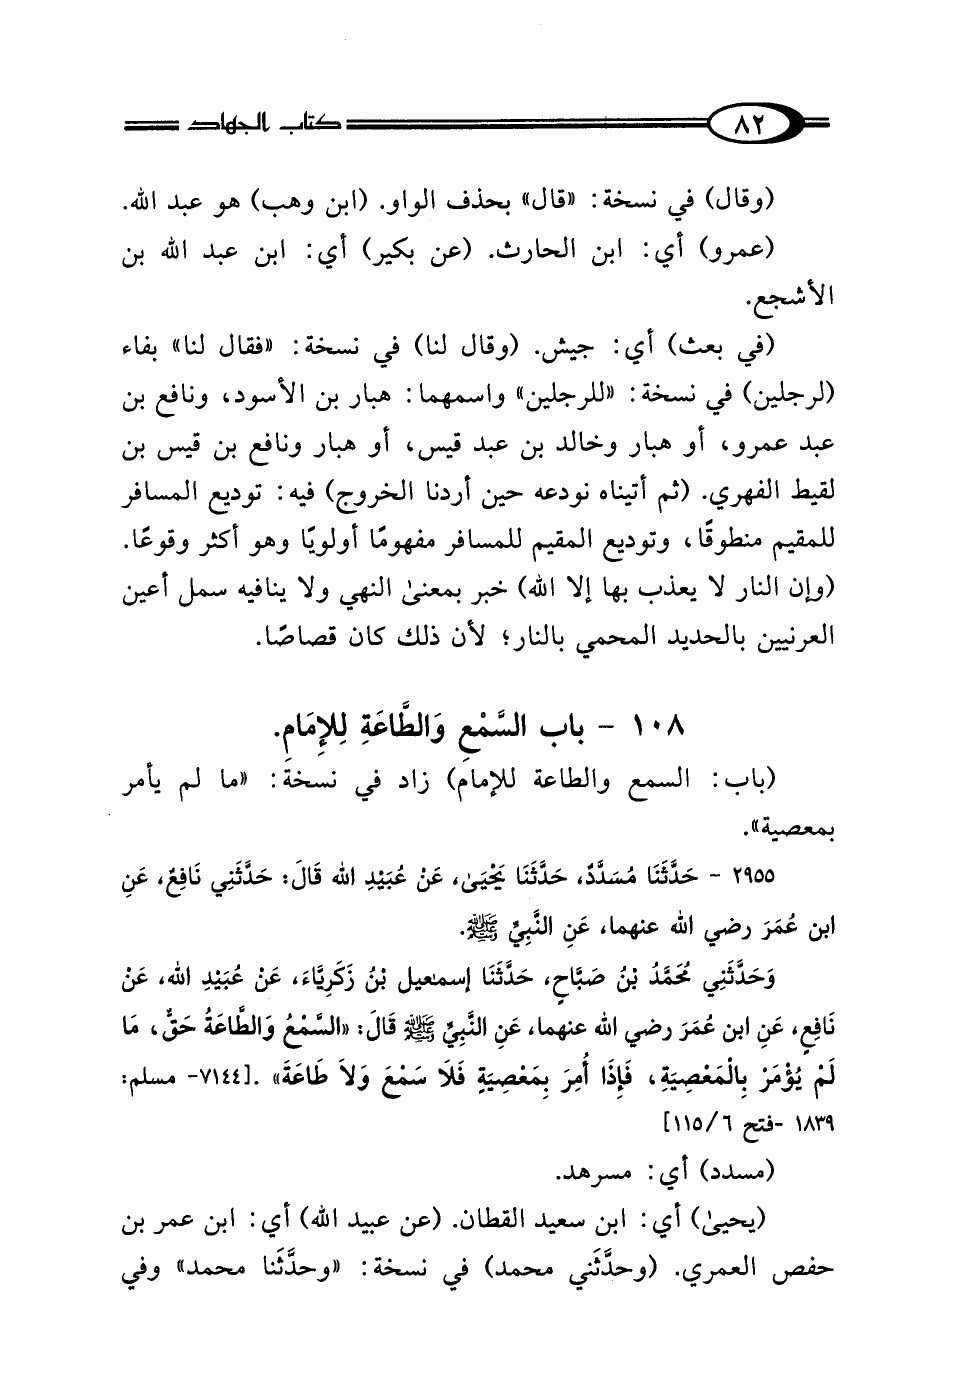 ٨٢ كتاب الجهاد
(وقال) في نسخة: «قال» بحذف الواو. (ابن وهب) هو عبد الله.
(عمرو) أي: ابن الحارث. (عن بكير) أي: ابن عبد الله بن
الأشجع.
(في بعث) أي: جيش. (وقال لنا) في نسخة: «فقال لنا» بفاء
(لرجلين) في نسخة: «للرجلين» واسمهما: هبار بن الأسود، ونافع بن
عبد عمرو، أو هبار وخالد بن عبد قيس، أو هبار ونافع بن قيس بن
لقيط الفهري. (ثم أتيناه نودعه حين أردنا الخروج) فيه: توديع المسافر
للمقيم منطوقًا، وتوديع المقيم للمسافر مفهومًا أولويًا وهو أكثر وقوعًا.
(وإن النار لا يعذب بها إلا الله) خبر بمعنىٰ النهي ولا ينافيه سمل أعين
العرنيين بالحديد المحمي بالنار؛ لأن ذلك كان قصاصًا.
١٠٨ - باب السَّمْعِ وَالطَّاعَةِ لِلإِمَامِ.
(باب: السمع والطاعة للإمام) زاد في نسخة: «ما لم يأمر
بمعصية».
٢٩٥٥ - حَدَّثَنَا مُسَدَّدٌ، حَدَّثَنَا يَحْيَىٰ، عَنْ عُبَيْدِ الله قَالَ: حَدَّثَنِي نَافِعٌ، عَنِ
ابن عُمَرَ رضي الله عنهما، عَنِ النَّبِيِّ ﷺ.
وَحَدَّثَنِي مُحَمَّدُ بْنُ صَبَّاحٍ، حَدَّثَنَا إسمٰعيل بْنُ زَكَرِيَّاءَ، عَنْ عُبَيْدِ الله، عَنْ
نَافِعٍ، عَنِ ابن عُمَرَ رضي الله عنهما، عَنِ النَّبِيِّ ﷺ قَالَ: «السَّمْعُ وَالطَّاعَةُ حَقٌّ، مَا
لَمْ يُؤْمَرْ بِالْمَعْصِيَةِ، فَإِذَا أُمِرَ بِمَعْصِيَةٍ فَلَا سَمْعَ وَلاَ طَاعَةَ». [٧١٤٤- مسلم:
١٨٣٩ -فتح ٦/١١٥]
(مسدد) أي: مسرهد.
(يحيىٰ) أي: ابن سعيد القطان. (عن عبيد الله) أي: ابن عمر بن
حفص العمري. (وحدَّثَني محمد) في نسخة: «وحدَّثَنا محمد» وفي